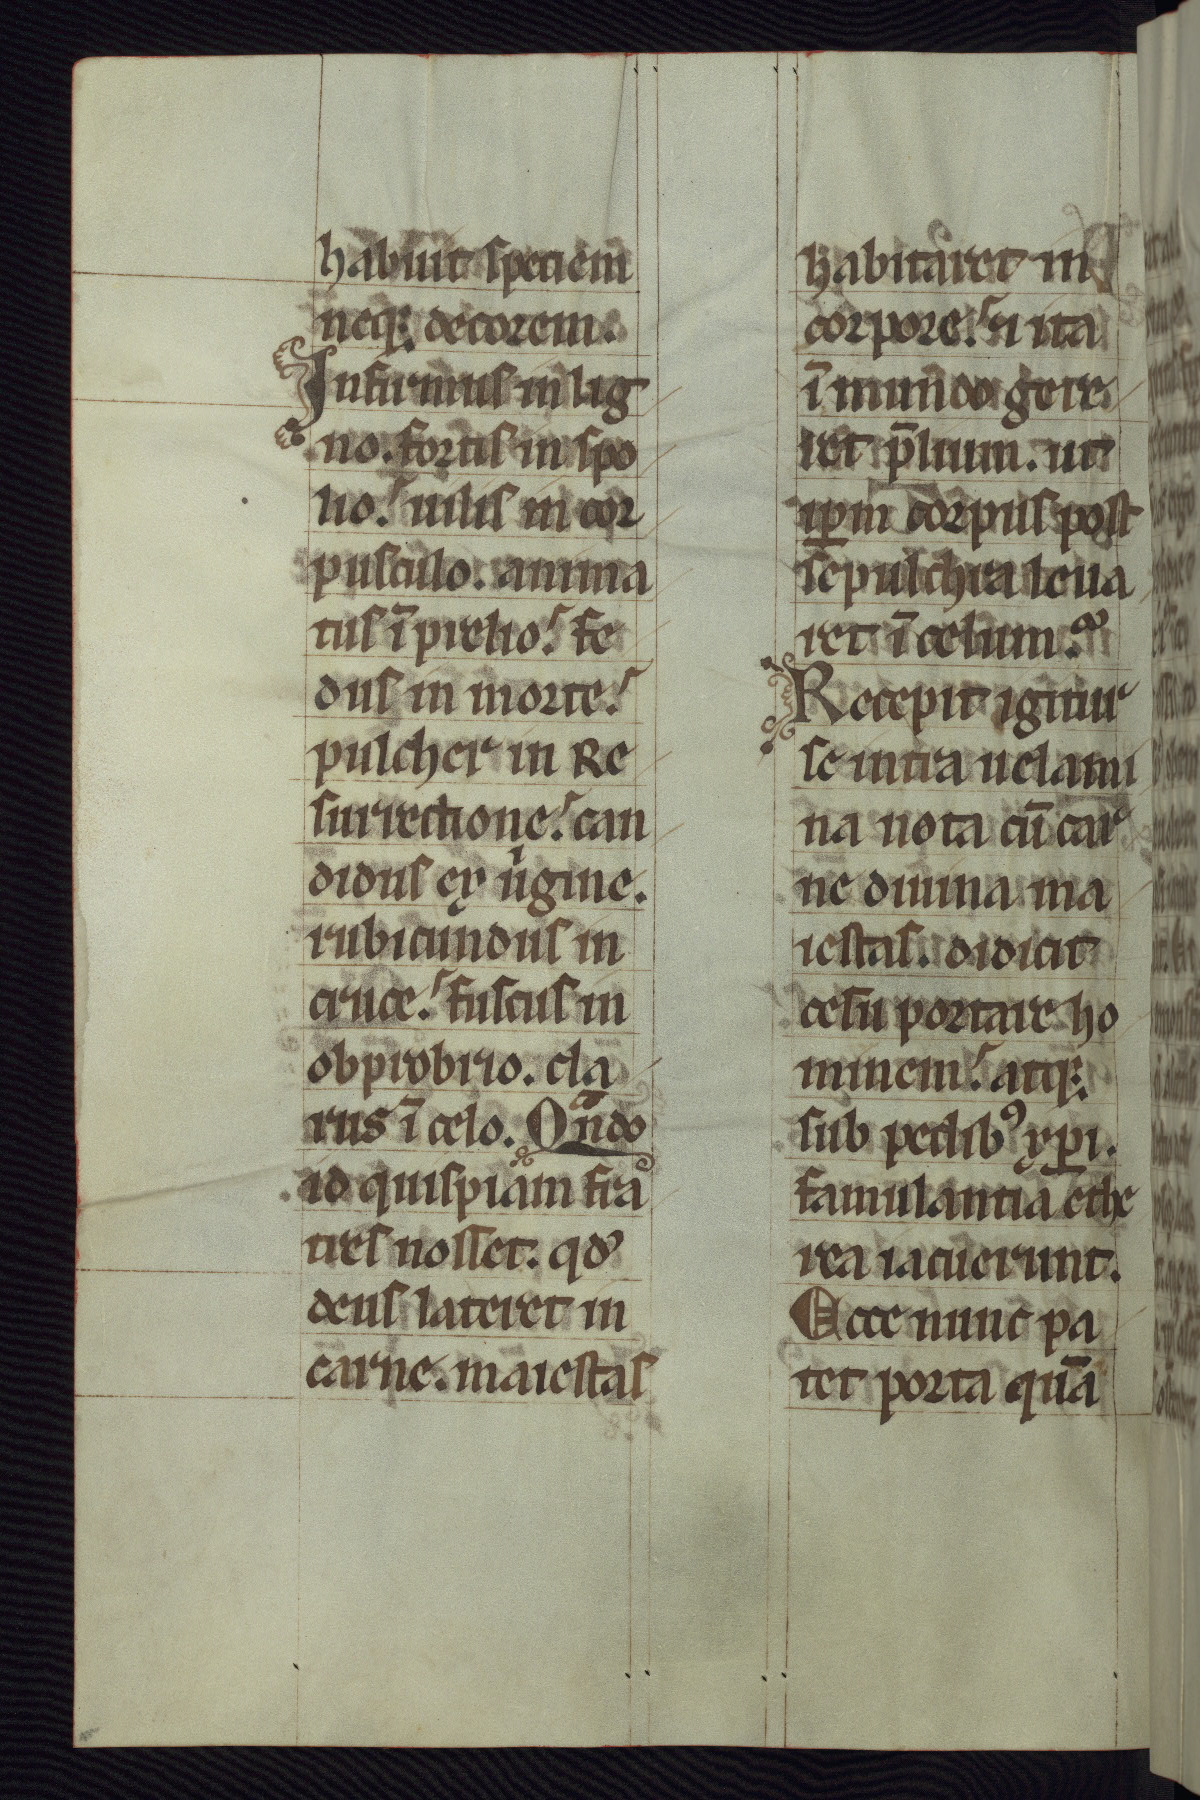 habuit speciem
neq; decorem.
Infirmus in lig
no. fortis in spo
lio. uilis in cor
pusculo. anima
tus ī prelio. fe
dus in morte.
pulcher in Re
surrectione. can
didus ex uⁱgine.
rubicundus in
cruce. fuscus in
obprobrio. cla
rus ī celo. Qᵃndo
id quispiam fra
tres nosset. qđ
deus lateret in
carne. maiestas
habitaret in
corpore. ⁊ ita
ī mundo gere
ret p̄lium. ut
ip̄m corpus post
sepulchra leua
ret ī celum.
Recepit igitur
se intra uelami
na nota cū car
ne diuina ma
iestas. didicit
celū portare ho
minem. atq;
sub pedibꝰ xp̄i.
famulantia ethe
rea iacuerunt.
Ecce nunc pa
tet porta quā